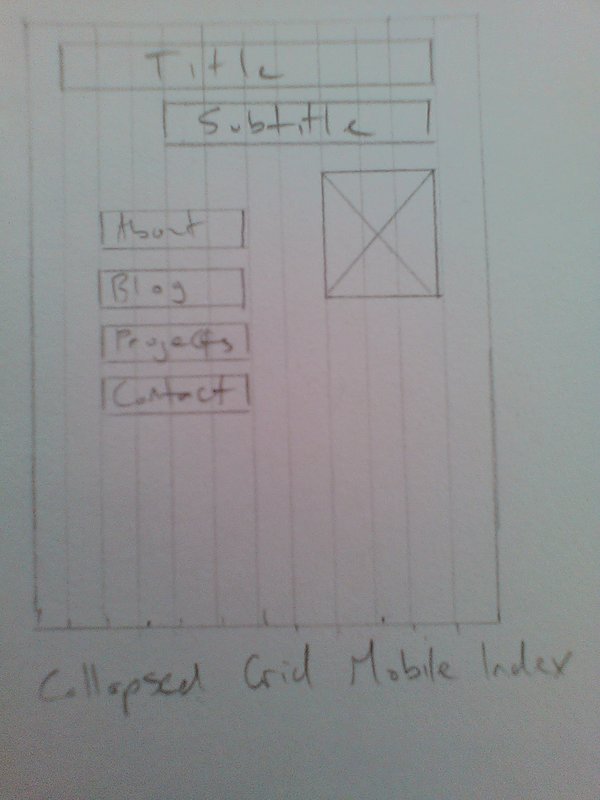 Title
Subtitle
About
Blog
Projects
Contact
Collapsed Grid Mobile Index